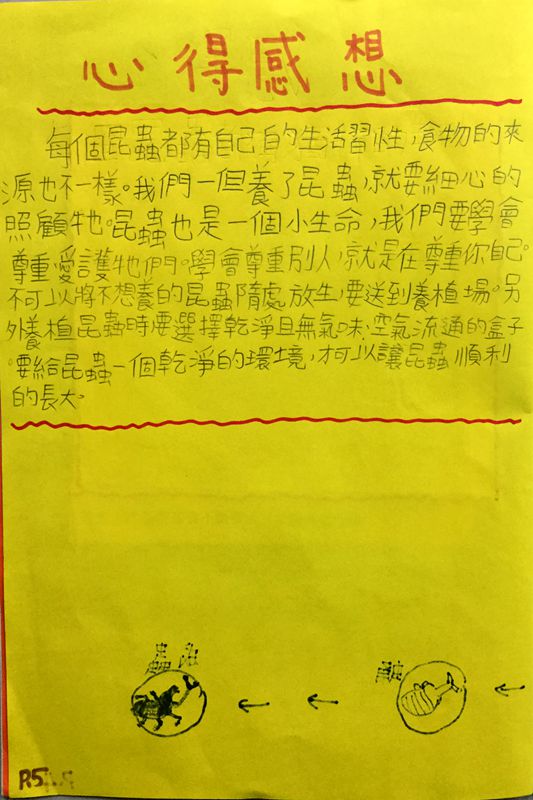 心得感想
每個昆蟲都有自己的生活習性,食物的來
源也不一樣。我們一但養了昆蟲,就要細心的
照顧牠。昆蟲也是一個小生命,我們要學會
尊重愛護牠們。學會尊重別人,就是在尊重你自己。
不可以將不想養的昆蟲隨處放生,要送到養植場。另
外養植昆蟲時要選擇乾淨且無氣味,空氣流通的盒子
。要給昆蟲一個乾淨的環境,才可以讓昆蟲順利
的長大。
成蟲
蛹
P.5